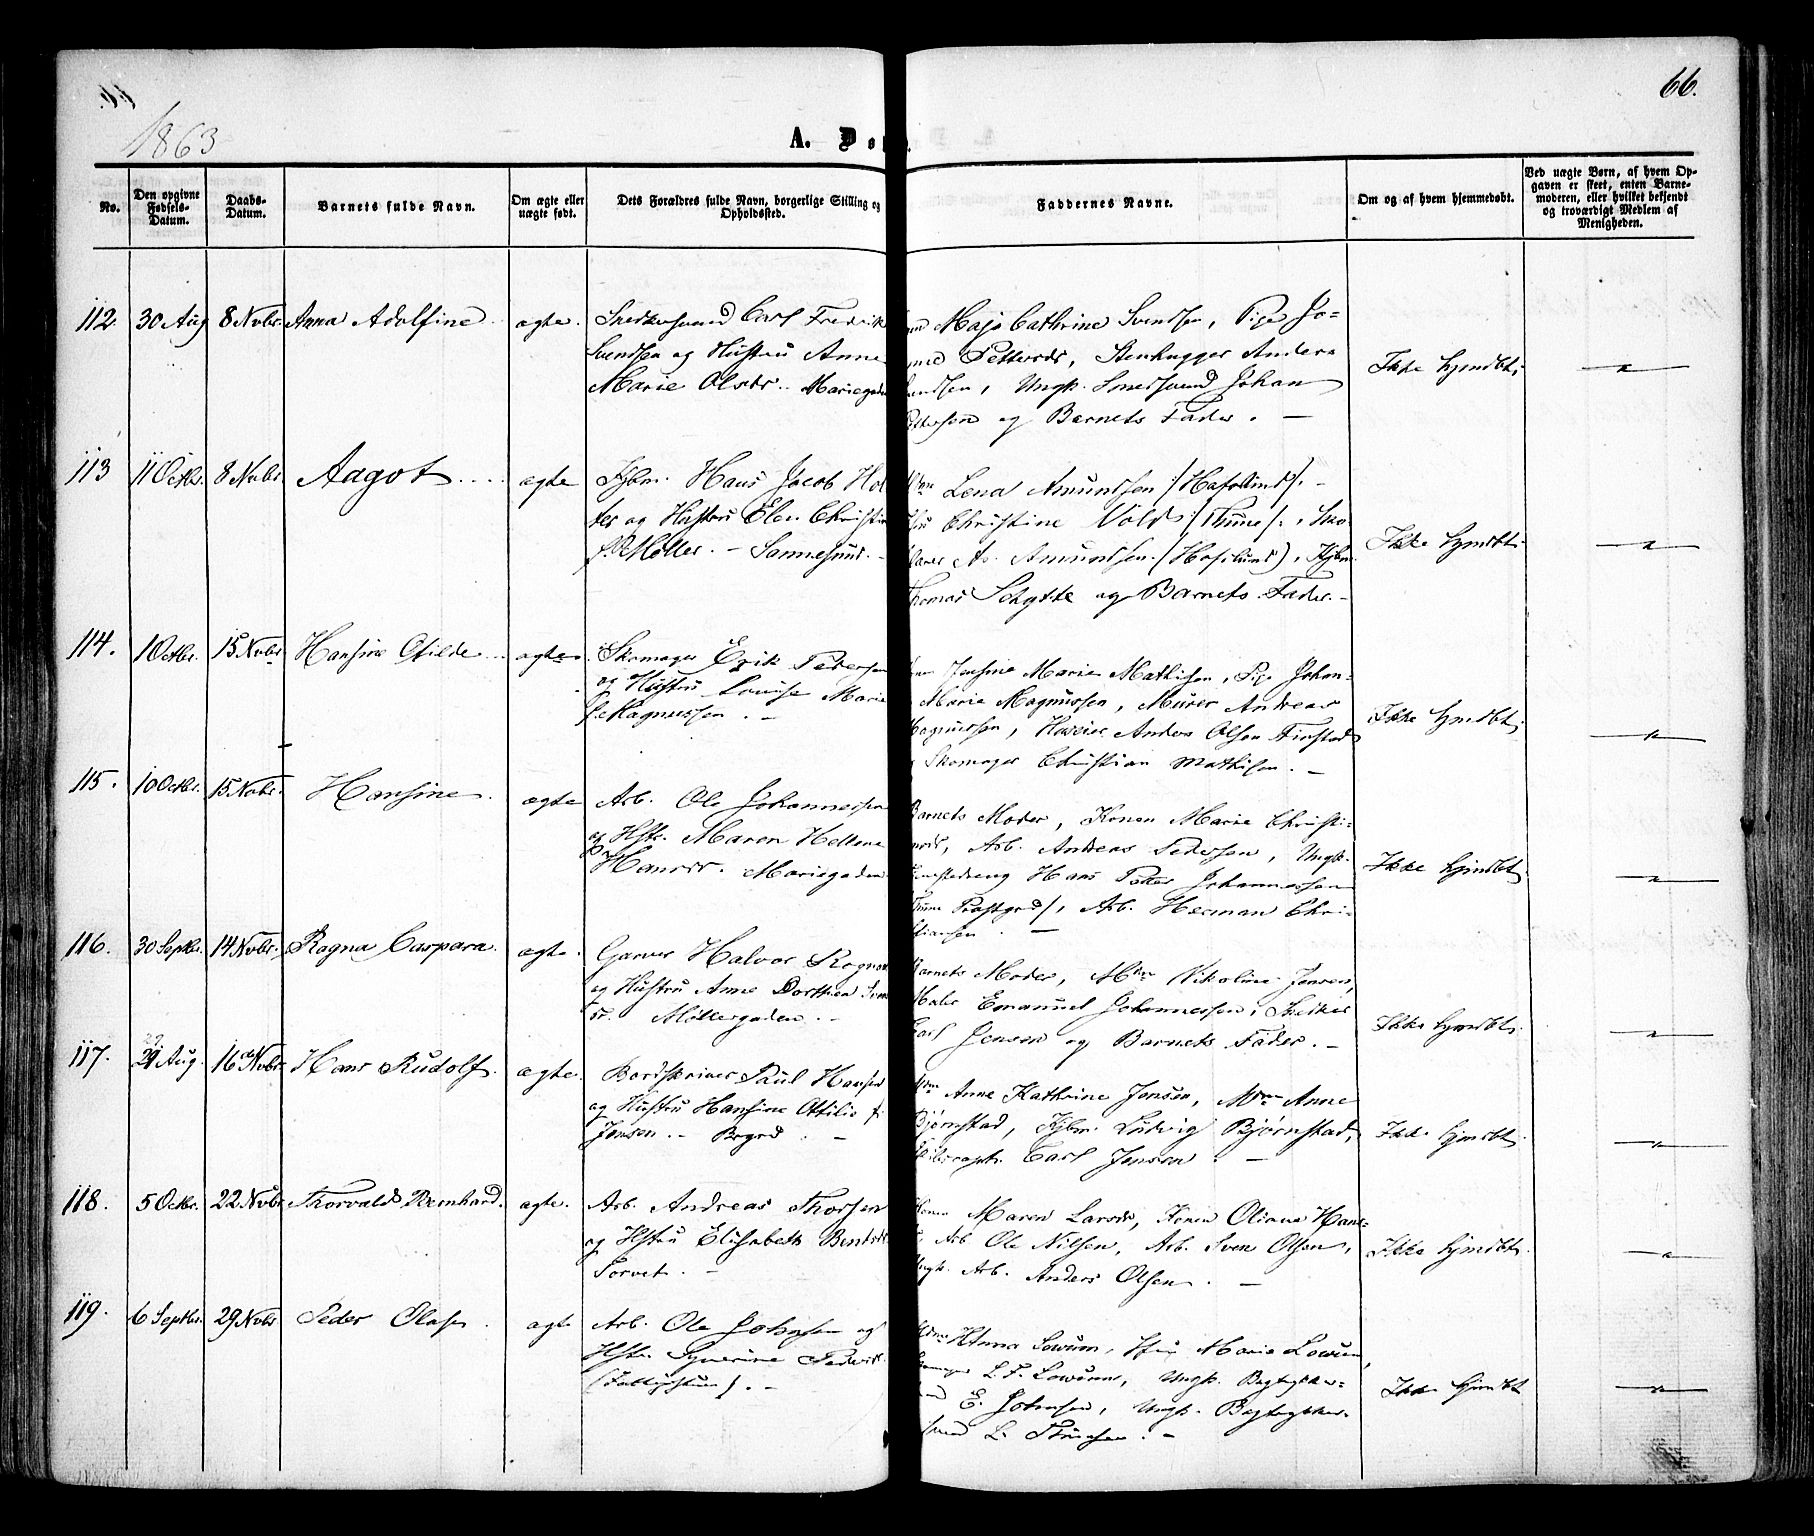 66.
1863
A. Dø
No.
Den opgivne Fødsels-Datum.
Daabs-Datum.
Barnets fulde Navn.
Om ægte eller uægte født.
Dets Forældres fulde Navn, borgerlige Stilling og Opholdssted.
Faddernes Navne.
Om og af hvem hjemmedøbt.
Ved uægte Børn, af hvem Opgaven er skeet, enten Barnemoderen, eller hvilket bekjendt og troværdigt Medlem af Menigheden.
112. 30 Aug 8 Novbr. Anna Adolfine ægte. Snedkersvend Carl Fredrik
Svendsen og Hustru Anne
Marie Olsdr. Mariegaden
Maja Cathrine Svendsen, Pige Jo-
Pettersdr, Stenhugger Anders
Ungk. Smedsvend Johan
og Barnets Fader. —
Ikke hjmdbt.
113 11 Octbr. 8 Novbr Aagot ægte Kjbm. Hans Jacob Hol
ter og Hustru Elen Christin
f. Møller. - Sannesund. -
Lena Amundsen /: Hafslund /: -
Christine Vold /: Thune /:, Sko
A. Amundsen (Hafslund), Kjbm.
Thomas Schytte og Barnets Fader. -
Ikke hjmdbt.
114. 1 Octbr. 15 Novbr Hansine Otilde ægte Skomager Erik Pedersen
og Hustru Lovise Marie
f. Magnussen. -
Jensine Marie Mathisen, Pige Johan-
Marie Magnussen, Murer Andreas
Magnussen, Anders Olsen Finstad
Skomager Christian Mathisen. -
Ikke hjmdbt.
115. 10 Octbr. 15 Novbr. Hansine. ægte Arb. Ole Johannessen
og Hstr. Maren Hellene
Hansdr. Mariegaden
Barnets Moder, Konen Marie Christi-
Arb. Andreas Pedersen, Ungk.
Hans Peter Johannessen
Thune Præstgrd /:, Arb. Herman Chri-
stiansen. —
Ikke hjmdbt.
116. 30 Septbr. 14 Novbr. Ragna Caspara. ægte. Garver Halvor
og Hustru Anne Dorthea
dr. Møllergaden. -
Barnets Moder, Mdm Nikoline Jensen,
Maler Emanuel Johannessen, Snedker
Carl Jensen og Barnets Fader. -
Ikke hjmdbt.
117. Aug. 16 Novbr. Hans Rudolf. ægte. Bordskriver Paul Hansen
og Hustru Hansine Ottilie f.
Jensen. -
Mdm Anne Kathrine Jensen, Mdm Anne
Bjørnstad, Kjbm. Ludvig Bjørnstad,
Carl Jensen. —
Ikke hjmdbt.
118. 5 Octbr. 22 Novbr Thorvald Bernhard. ægte. Arb. Andreas Thorsen
og Hstru Elisabeth
Torvet. -
Konen Maren Larsdr, Konen Oliane Hans-
Arb Ole Nilsen, Arb. Sven Olsen,
Ungk. Arb. Anders Olsen. —
Ikke hjmdbt.
119. 6 Septbr. 29 Novbr Peder Olaf. ægte Arb. Ole Johnsen og
Hstr. Syverine
Mdm Anna Marie
L. F. Ungk. Bagtygskær-
E. Johnsen, Ungk. Bagtygskær-
svend L. -
Ikke hjmdbt